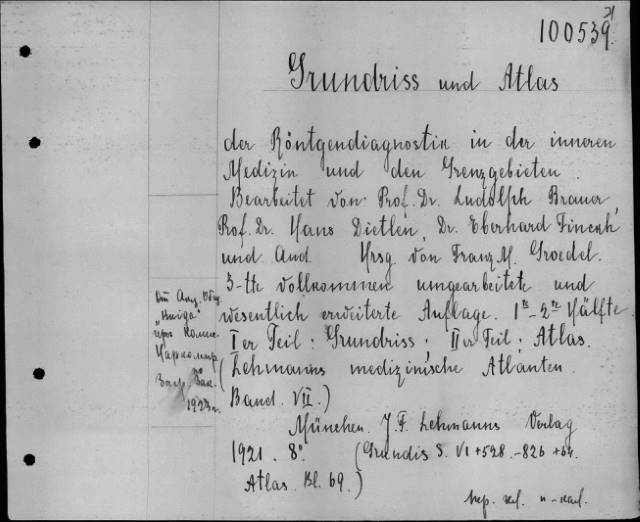 100539
Grundriss und Atlas
der Röntgendiagnostik in der inneren
Medizin und den Grenzgebieten.
Bearbeitet von: Prof. Dr. Ludolph Brauer,
Prof. Dr. Hans Dietlen, Dr. Eberhard Finckh
und And. Hrsg. von Franz M. Groedel.
3-tte vollkommen umgearbeitete und
wesentlich erweiterte Auflage. 1te-2te Hälfte
Ier Teil: Grundriss; IIer Teil: Atlas.
(Lehmanns medizinische Atlanten.
Band. VII.)
München. J. F. Lehmanns Verlag
1921. 8°. (Grundis S. VI+528.-826+64.
Atlas. Bl. 69.)
"Книга"
через
1923 г.